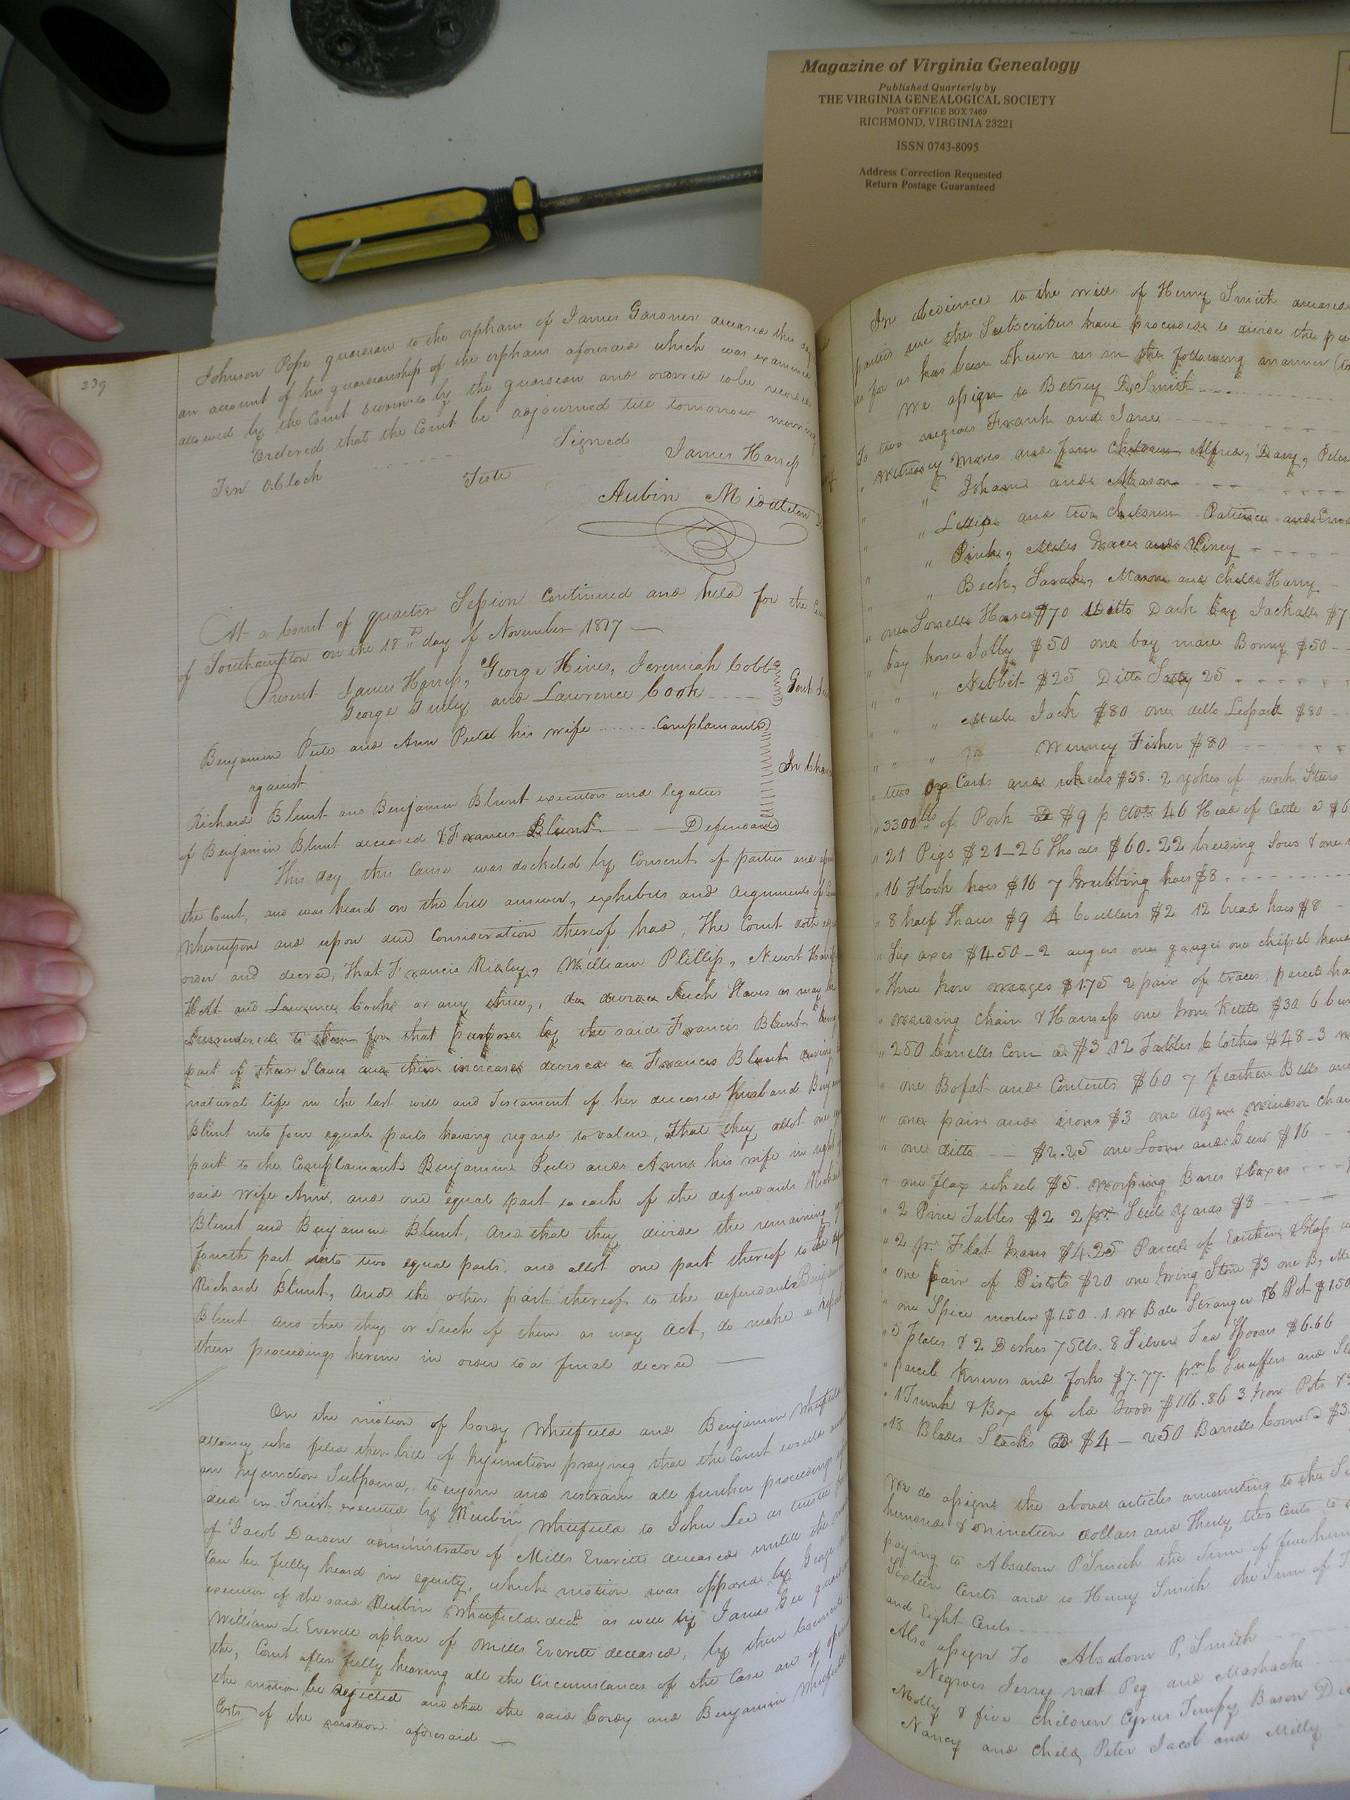 Magazine of Virginia Genealogy
Published Quarterly by
THE VIRGINIA GENEALOGICAL SOCIETY
POST OFFICE BOX 7469
RICHMOND, VIRGINIA 23221
ISSN 0743-8095
Address Correction Requested
Return Postage Guaranteed
239
Johnson Pope guardian to the orphans of James Gardner deceased this day
an account of his guardianship of the orphans aforesaid which was examined
allowed by the Court sworn to by the guardian and ordered to be recorded
Ordered that the Court be adjourned till tomorrow morning
Ten OClock
Signed James Harriss
Teste
Aubin Middleton
At a Court of quarter Session Continued and held for the
of Southampton on the 18th day of November 1817
Present James Harriss, George Hines, Jeremiah Cobb
George Gurley and Lawrence Cook
Benjamin Pete and Ann Pete his wife Complainants
against
Richard Blunt and Benjamin Blunt executors and legatees
of Benjamin Blunt deceased & Francis Blunt Defendants
This day this cause was docketed by Consent of parties and
the Court, and was heard on the bill answer, exhibits and arguments of
whereupon and upon due Consideration thereof had, The Court doth
order and decree, that Francis Ridley, William Phillips, Newit
Holt and Lawrence Cooke or any three, do divide such Slaves as may be
Surrendered to them for that purpose by the said Francis Blunt being
part of those Slaves and their increase devised to Francis Blunt during
natural life in the last will and Testament of her deceased Husband
Blunt into four equal parts having regard to value, That they allot one
part to the Complainants Benjamin Pete and Anne his wife in right of
said wife Ann, and one equal part to each of the defendants Richard
Blunt and Benjamin Blunt, And that they divide the remaining
fourth part into two equal parts, and allot one part thereof to the
Richard Blunt, and the other part thereof to the defendant Benjamin
Blunt and that they or such of them as may act, do make a report
their proceedings herein in order to a final decree
On the motion of Cordy Whitfield and Benjamin Whitfield
attorney who filed their bill of Injunction praying that the Court would
an Injunction Subpoena, to enjoin and restrain all further proceedings
deed in Trust executed by Reubin Whitfield to John Lee as trustee
of Jacob Darden administrator of Mills Everett deceased until the
Can be fully heard in equity, which motion was opposed by George
executor of the said Reubin Whitfield decd. as well by James Gee
William L Everett orphan of Mills Everett deceased, by their Counsel
the, Court after fully hearing all the Circumstances of the Case are of
the motion be rejected and that the said Cordy and Benjamin Whitfield
Costs of the motion aforesaid
In obedience to the will of Henry Smith deceased
parties we the Subscribers have proceeded to divide the
as far as has been shewn us in the following manner
We assign to Betsey D. Smith
To two negroes Frank and Jane
and four children Alfred, Davy, Peter
" Isham and Mason
" and two children Patience and
" Pink, Miles Grace and Viney
" Beck, Sarah, Mason and child Harry
" one Sorrell Horse $70 ditto Dark bay Jackall $7
bay horse Jolly $50 one bay mare Bonny $50
" " Nibbit $25 Ditto 25
" " Mule Jack $80 one ditto Leopard $80
" " Winney Fisher $80
" two Ox Carts and wheels $38. 2 yokes of work Steers
" 3300 lbs of Pork @ $9 p Cwt 46 Head of Cattle @ $6
" 21 Pigs $21 - 26 Shoats $60. 22 breeding Sows & one
" 16 Flock hoes $16 7 Grubbing hoes $8
" 8 half Shares $9 4 Coulters $2 12 broad hoes $8
" Six axes $4.50 - 2 augers one gauge one chissel
" three Iron wedges $1.75 2 pair of traces, parcel
" chain & Harness one Iron Kettle $30 6
" 250 barrells Corn @ $3 12 Tables & Cloths $48 - 3
" one Bofat and Contents $60 7 feather Beds and
" one pair and irons $3 one dozen windsor chairs
" one ditto $2.25 one Loom and Gear $16
" one Flax wheel $5. Warping Bars & boxes
" 2 Pine Tables $2 2 pr. Steel yards $8
" 2 pr. Flat Irons $4.25 Parcel of Earthen & Glass
" one pair of Pistols $20 one Gring Stone $3 one
" one Spice mortar $1.50. 1 W Ban Stranger 16 Pot $1.50
" 5 Plates & 2 Dishes 75 Cts. 8 Silver Tea Spoons $6.66
" parcel Knives and forks $7.77. pr. Snuffers and
" 1 Trunk & Box of old Goods $116.86 3 Iron Pots &
" 18 Blades Stacks @ $4 - 250 Barrells Corn @ $3
We do assign the above articles amounting to the
hundred & nineteen dollars and thirty two Cents to
paying to Absalom P Smith the Sum of five hundred
Sixteen Cents and to Henry Smith the Sum of
and Eight Cents
Also assign To Absalom P. Smith
Negroes Jerry nat Peg and Mashack
Molly & five Children Cyrus Tempy Bason
Nancy and Child, Peter Jacob and Milly